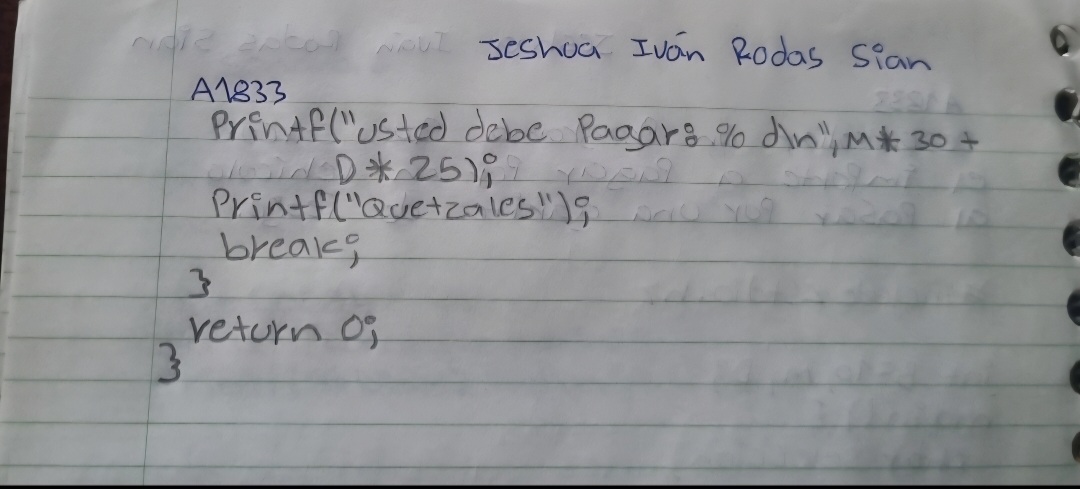 Jeshua Iván Rodas Sian
A1833
Printf("usted debe Pagar: % d\n", M* 30 +
D * 25);
Printf("Quetzales");
break;
}
return 0;
}